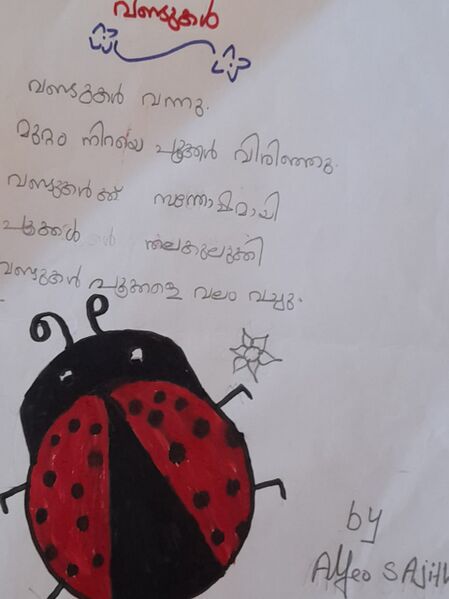 വണ്ടുകൾ
വണ്ടുകൾ വന്നു.
മുറ്റം നിറയെ പൂക്കൾ വിരിഞ്ഞു.
വണ്ടുകൾക്ക് സന്തോഷമായി
പൂക്കൾ തലകുലുക്കി
വണ്ടുകൾ പൂക്കളെ വലം വച്ചു.
by
Alfeo S Ajith